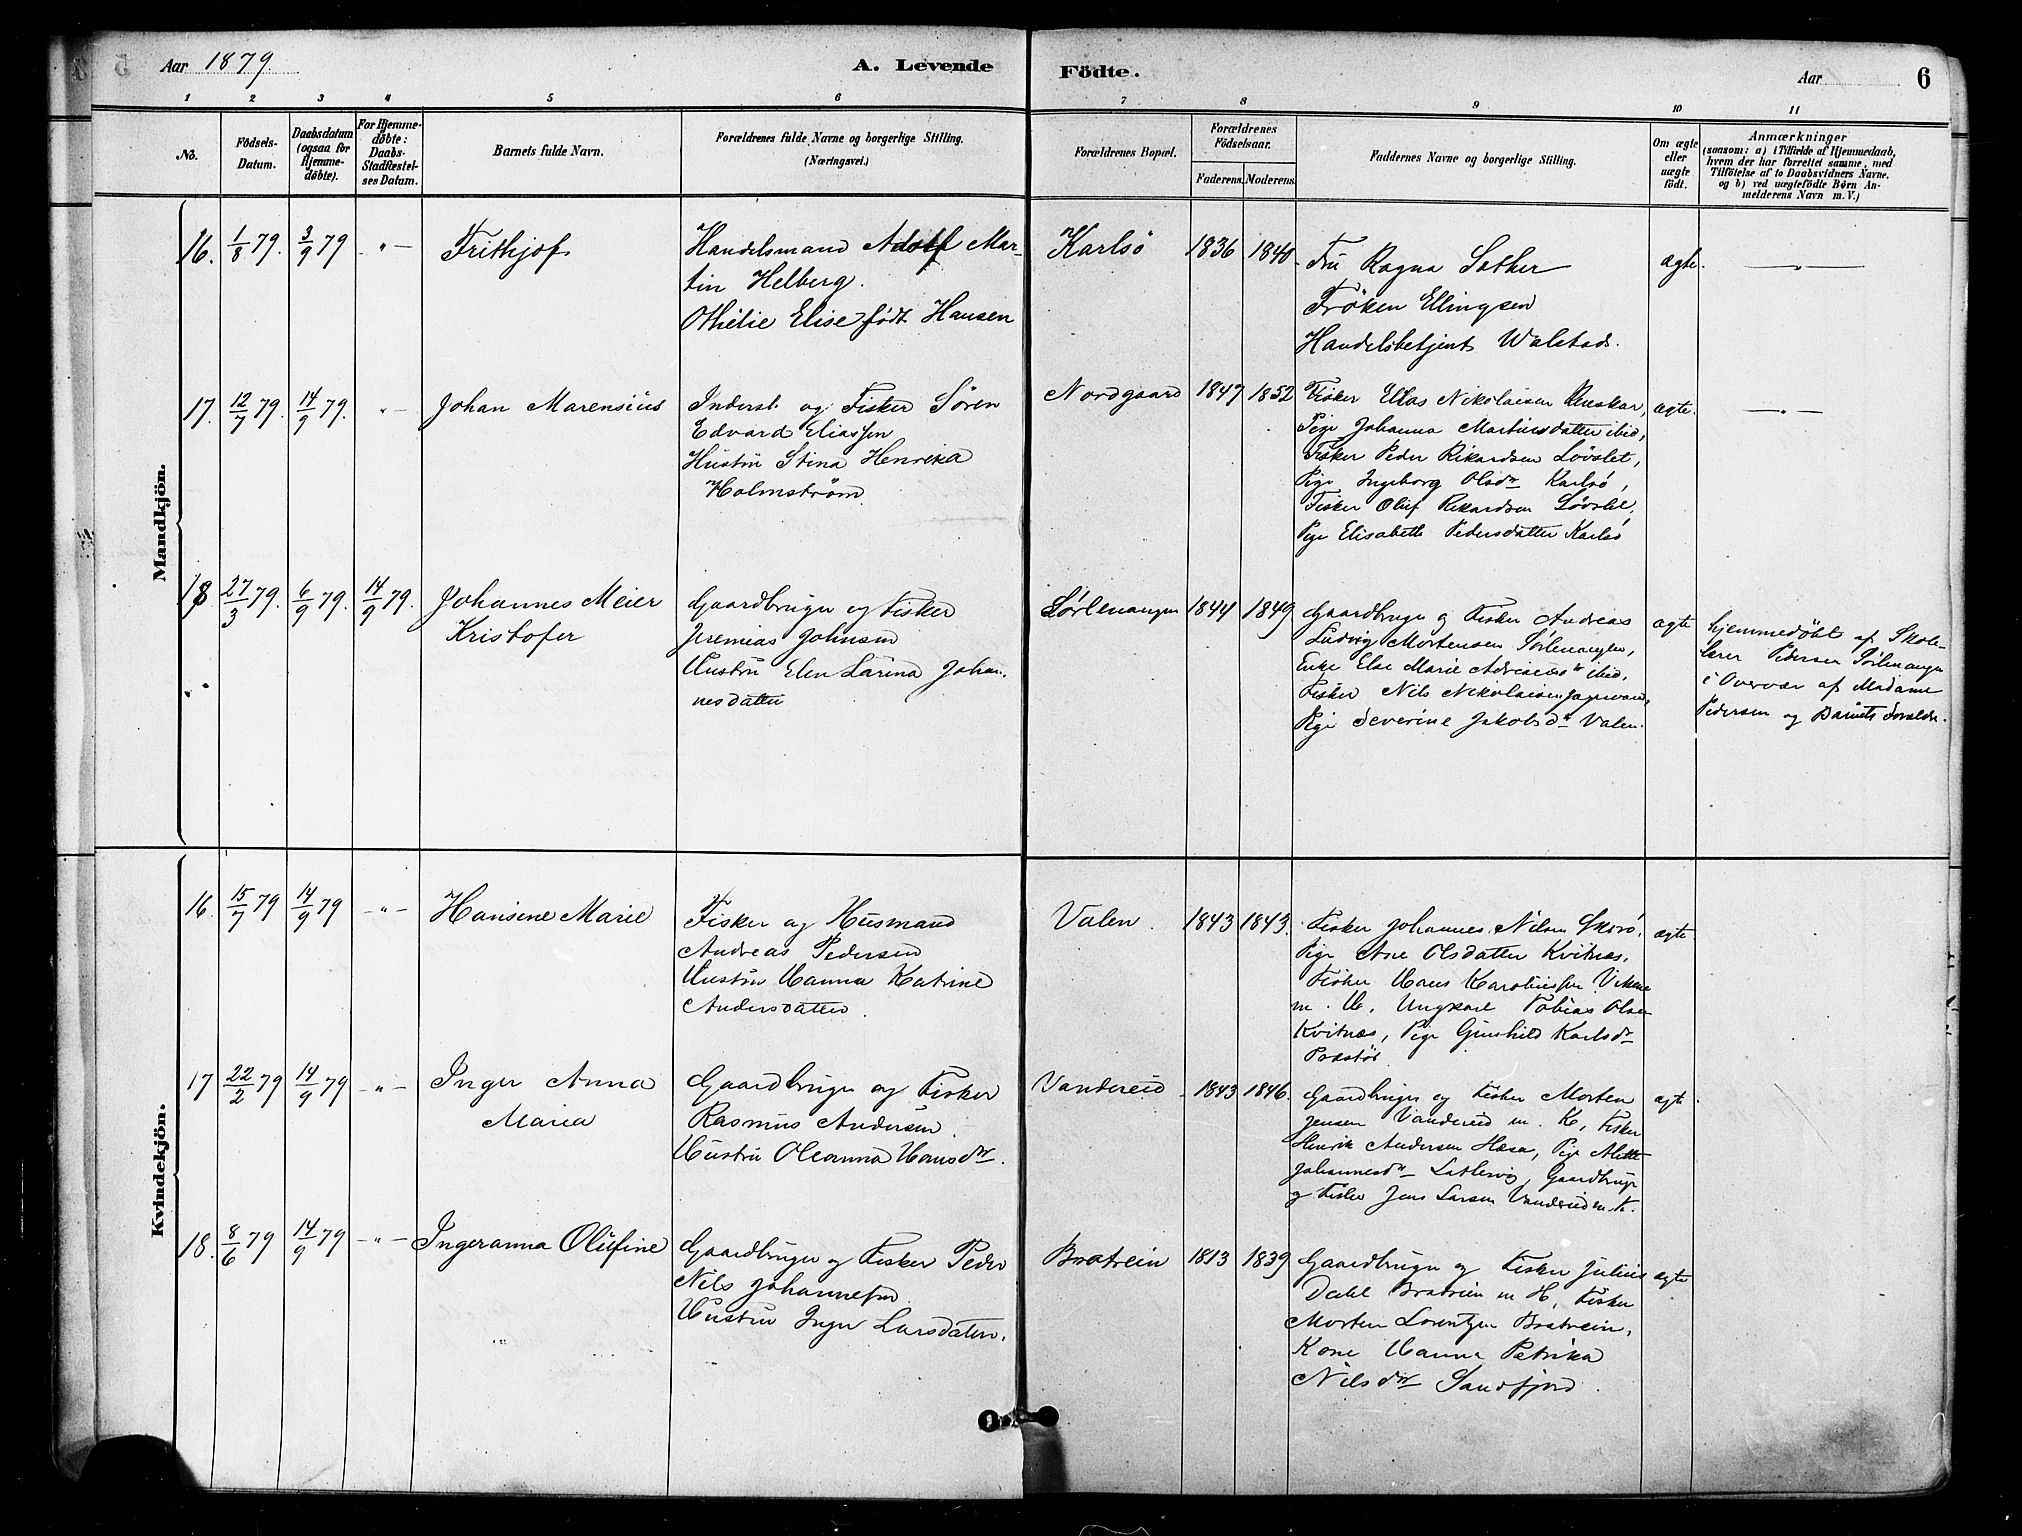 Aar 1879.
A. Levende Födte.
Aar
6
1 2 3 4 5 6 7 8 9 10 11
No.
Födsels-Datum.
Daabsdatum (ogsaa for Hjemmedöbte).
For Hjemmedöbte: Daabs-Stadfæstelses Datum.
Barnets fulde Navn.
Forældrenes fulde Navne og borgerlige Stilling.
(Næringsvei.)
Forældrenes Bopæl.
Forældrenes Födselsaar.
Faderens. Moderens.
Faddernes Navne og borgerlige Stilling.
Om ægte eller uægte födt.
Anmærkninger
(saasom: a) i Tilfælde af Hjemmedaab,
hvem der har forrettet samme, med
Tilföielse af to Daabsvidners Navne,
og b) ved uægtefödte Börn An-
melderens Navn m. V.)
Mandkjön.
16. 1/8 79. 3/9 79 -"-
Frithjof
Handelsmand Adolf Mar-
tin Helberg.
Othelie Elise født Hansen
Karlsö
1836 1840
Fru Ragna Sather
Fröken Ellingsen
Handelsbetjent Walstad.
ægte.
-"-
17. 12/7 79. 14/9 79. -"-
Johan Marensius
Inderst. og Fisker Sören
Edvard Eliassen
Hustru Stina Henrika
Holmström
Nordgaard
1847 1852
Fisker Elias Nikolaisen
Pige Johanna Martinsdatter ibid,
Fisker Peder Rikardsen Løvslet,
Pige Ingeborg Olsdr Karlsö,
Fisker Oluf Rikardsen Løvslet,
Pige Elisabeth Pedersdatter Karlsö
ægte.
-"-
18. 27/3 79. 6/9 79. 14/9 79.
Johannes Meier
Kristofer
Gaardbruger og Fisker
Jeremias Johnsen
Hustru Elen Larina Johan-
nesdatter
Sørlenangen
1844 1849
Gaardbruger og Fisker Andreas
Ludvig Mortensen Sørlenangen,
Enke Else Marie ibid,
Fisker Nils Nikolaisen Jægervand,
Pige Severine Jakobsdr Valen.
ægte
hjemmedøbt af Skole-
lærer Pedersen Sørlenangen
i Overvær af Madame
Pedersen og Barnets Forældre.
Kvindekjön.
16. 15/7 79 14/9 79 -"-
Hansine Marie
Fisker og Husmand
Andreas Pedersen
Hustru Hanna Katrine
Andersdatter.
Valen.
1843 1843.
Fisker Johannes Nilsen Skorö.
Pige Ane Olsdatter Kvitnæs,
Fisker Hans Karoliussen
m. H, Ungkarl Tobias Olsen
Kvitnæs, Pige Gunhild Karlsdr
Præstøs
ægte.
17 22/2 79 14/9 79 -"-
Inger Anna
Maria
Gaardbruger og Fisker
Rasmus Andersen.
Hustru Oleanna Hansdr.
Vandereid
1843 1846.
Gaardbruger og Fisker Morten
Jensen Vandereid m. K, Fisker
Henrik Andersen Hæsa, Pige Alette
Johannesdr Gaardbruger
og Fisker Jens Larsen Vandereid m. K.
ægte.
18. 8/6 79 14/9 79 -"-
Ingeranna Olufine
Gaardbruger og Fisker Peder
Nils Johannesen
Hustru Inger Larsdatter.
Bratrein
1813 1839
Gaardbruger og Fisker Julius
Dahl Bratrein m H, Fisker
Morten Lorentzen Bratrein,
Kone Hanna Petrika
Nilsdr Sandfjord.
ægte